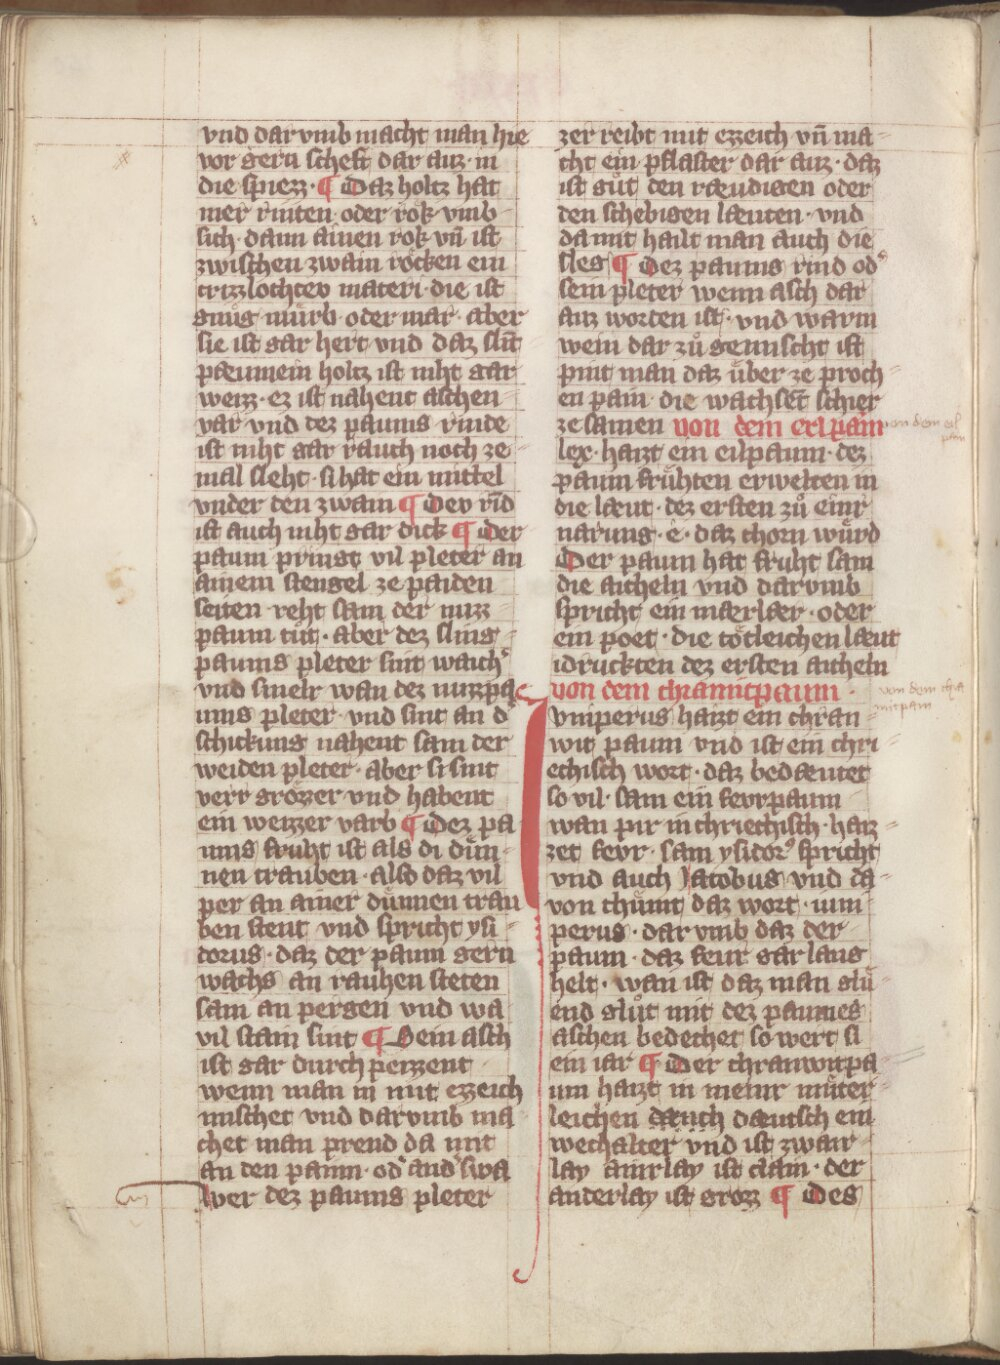 vnd dar vmb macht man hie
vor gern scheft dar auz · in
die spiezz · ¶ Daz holtz hat
mer rinten oder rok vmb
sich · dann ainen rok vn̄ ist
zwischen zwain röcken ein
trizzlochtev materi · die ist
gnůg můrb oder mar · aber
sie ist gar hert vnd daz slīt
pæumein holtz ist niht gar
weizz · ez ist nahent aschen
var vnd dez paums rinde
ist niht gar rauch noch ze
mal sleht · si hat ein mittel
vnder den zwain ¶ Dev rīd
ist auch niht gar dick ¶ Der
paum pringt vil pleter an
ainem stengel ze paiden
seiten reht sam der nuz
paum tůt · aber dez sling
paums pleter sint waich᾽
vnd sinelr wan dez nuzzpa
ums pleter · vnd sint an d᾽
schickung nahent sam der
weiden pleter · aber si sint
verr grözzer vnd habent
ein weizzer varb ¶ Dez pa
ums fruht ist als di důn
nen trauben · also daz vil
per an ainer důnnen trau
ben stent vnd spricht ysi
dorus · daz der paum gern
wachs an rauhen steten
sam an pergen vnd wa
vil stain sint ¶ Sein asch
ist gar durch peizzent
wenn man in mit ezzeich
mischet vnd darvmb ma
chet man prend da mit
an den paum · od᾽ and᾽ swa
wer dez paums pleter
zer reibt mit ezzeich vn̄ ma
cht ein pflaster dar auz · daz
ist gůt den ræudigen oder
den schebigen læuten · vnd
da mit hailt man auch die
sleg ¶ Dez paums rind od᾽
sein pleter wenn asch dar
auz worden ist · vnd warm
wein dar zů gemischt ist
pint man daz über ze proch
en pain · die wachsēt schier
ze samen von dem eilpaim
lex · haizt ein eilpaum · dez
paum frůhten erwelten in
die læut · dez ersten zů einr
narung · ê · daz chorn würd
Der paum hat fruht sam
die aicheln vnd darvmb
spricht ein mærlær · oder
ein poet · die tötleichen læut
idruckten dez ersten aicheln
von dem chranutpaum ·
vniperus haizt ein chran
wit paum vnd ist ein chri
echisch wort · daz bedæutet
so vil · sam ein fevrpaum
wan pir in chriechisch · haiz
zet fevr · sam ysidor᾽ spricht
vnd auch Jacobus vnd da
von chůmt daz wort · iuni
perus · dar vmb daz der
paum · daz feur gar lang
helt · wan ist daz man glů
end glůt mit dez paumes
aschen bedechet so wert si
ein iar ¶ Der chranwitpa
um haizt in meinr můter
leichen dæuch dæutsch ein
wechalter vnd ist zwair
lay ainrlay ist clain · der
anderlay ist grozz ¶ Des
von dem eil
pam
von dem chra
nutpam